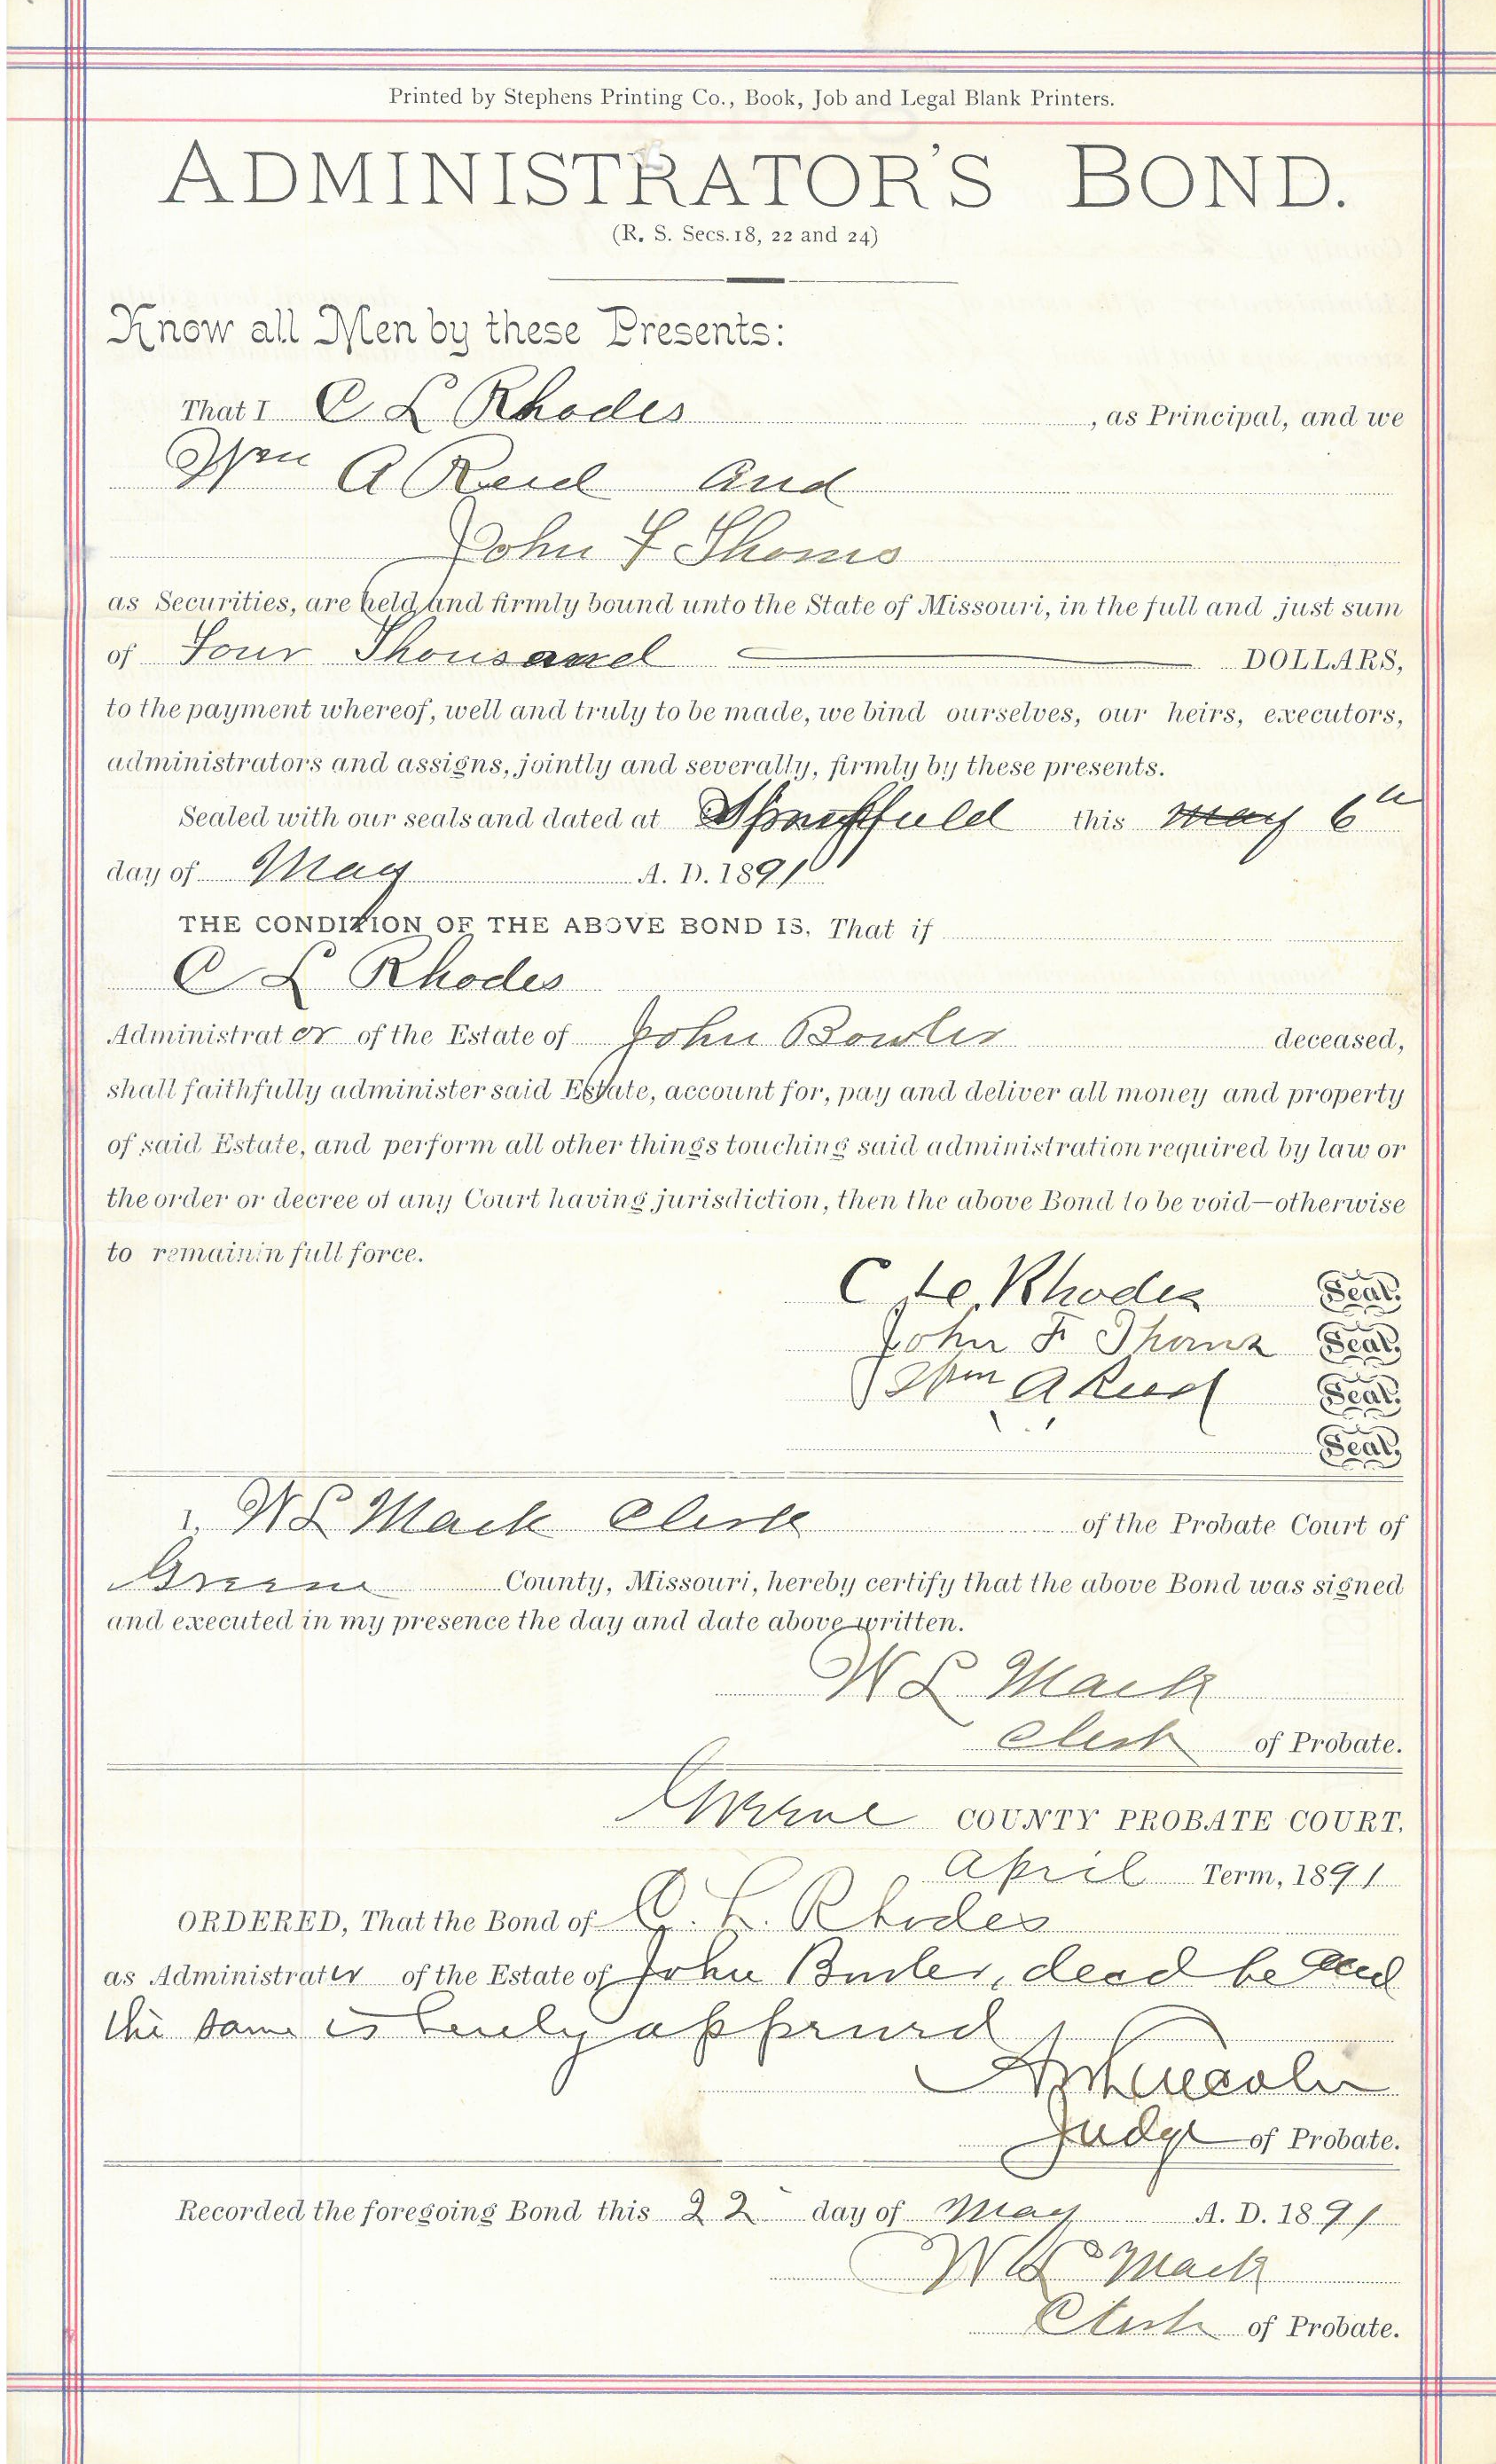 Printed by Stephens Printing Co., Book, Job and Legal Blank Printers.
ADMINISTRATOR'S BOND.
(R. S. Secs. 18, 22 and 24)
Know all Men by these Presents:
That I C L Rhodes, as Principal, and we
Wm A Reed and
John F Thoms
as Securities, are held and firmly bound unto the State of Missouri, in the full and just sum
of Four Thousand DOLLARS,
to the payment whereof, well and truly to be made, we bind ourselves, our heirs, executors,
administrators and assigns, jointly and severally, firmly by these presents.
Sealed with our seals and dated at Springfield this may 6th
day of May A. D. 1891
THE CONDITION OF THE ABOVE BOND IS, That if
C L Rhodes
Administrator of the Estate of John Bowler deceased,
shall faithfully administer said Estate, account for, pay and deliver all money and property
of said Estate, and perform all other things touching said administration required by law or
the order or decree of any Court having jurisdiction, then the above Bond to be void—otherwise
to remain in full force.
C Le. Rhodes Seal.
John F Thoms Seal.
Wm A Reed Seal.
Seal.
I, W L Mack Clerk of the Probate Court of
Greene County, Missouri, hereby certify that the above Bond was signed
and executed in my presence the day and date above written.
W L Mack
Clerk of Probate.
Greene COUNTY PROBATE COURT.
April Term, 1891
ORDERED, That the Bond of C. L. Rhodes
as Administrator of the Estate of John Bowler, dead be and
the same is hereby approved
Judge of Probate.
Recorded the foregoing Bond this 22 day of May A. D. 1891
W L Mack
Clerk of Probate.